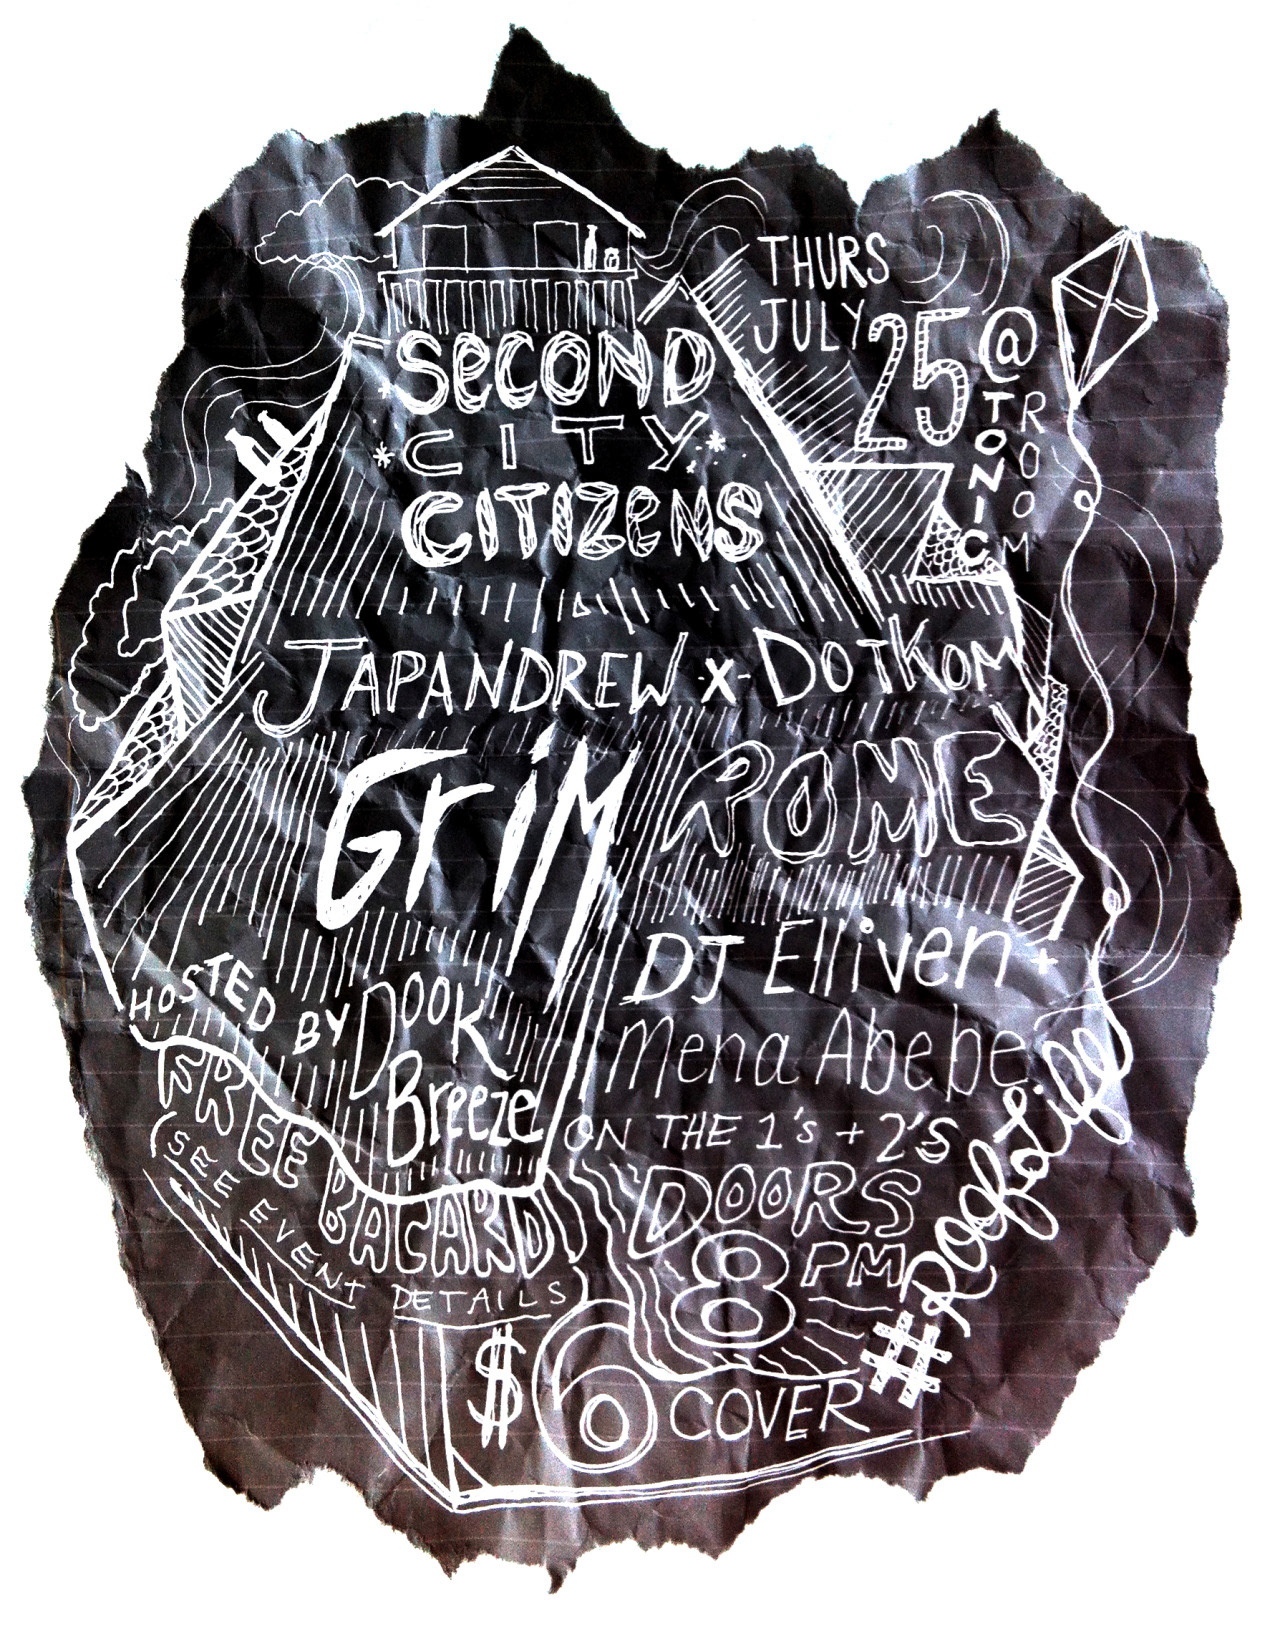 THURS
JULY 25 @
TONIC
ROOM
SECOND
CITY
CITIZENS
JAPANDREW x DOTKOM
GriM ROME
DJ Elliven +
Mena Abebe
ON THE 1's + 2's
HOSTED BY DOOK
Breeze
FREE BACARDI
(SEE EVENT DETAILS)
DOORS
8 PM
$6 COVER
#Rooftoplife